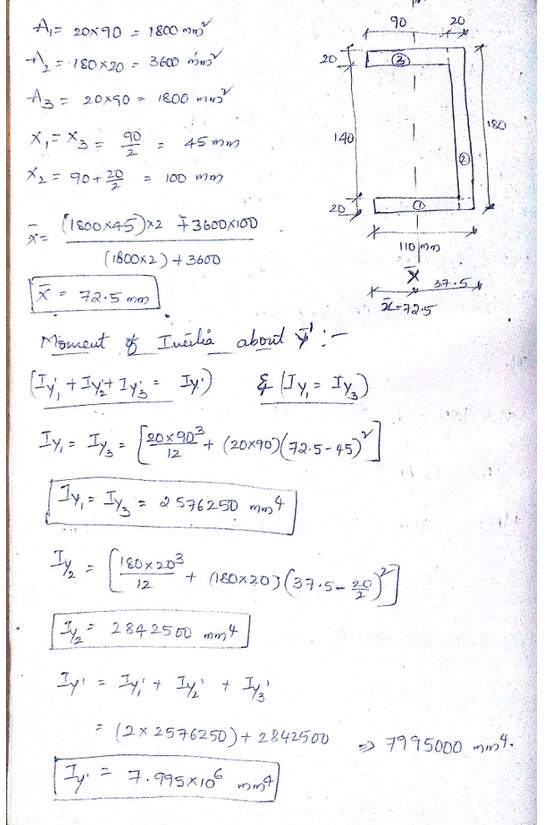 A₁ = 20×90 = 1800 mm²
A₂ = 180×20 = 3600 mm²
A₃ = 20×90 = 1800 mm²
X₁ = X₃ = 90/2 = 45 mm
X₂ = 90+20/2 = 100 mm
x̄ = (1800×45)×2 + 3600×100 / (1800×2)+3600
x̄ = 72.5 mm
90 20
20 ③
140 180
②
20 ①
110 mm
x̄ 37.5
x̄=72.5
Moment of Inertia about y' :-
(Iy₁' + Iy₂' + Iy₃' = Iy') & (Iy₁ = Iy₃)
Iy₁ = Iy₃ = [20×90³/12 + (20×90)(72.5-45)²]
Iy₁ = Iy₃ = 2576250 mm⁴
Iy₂' = [180×20³/12 + (180×20)(37.5-20/2)²]
Iy₂' = 2842500 mm⁴
Iy' = Iy₁' + Iy₂' + Iy₃'
= (2×2576250)+2842500 ⇒ 7995000 mm⁴.
Iy' = 7.995×10⁶ mm⁴